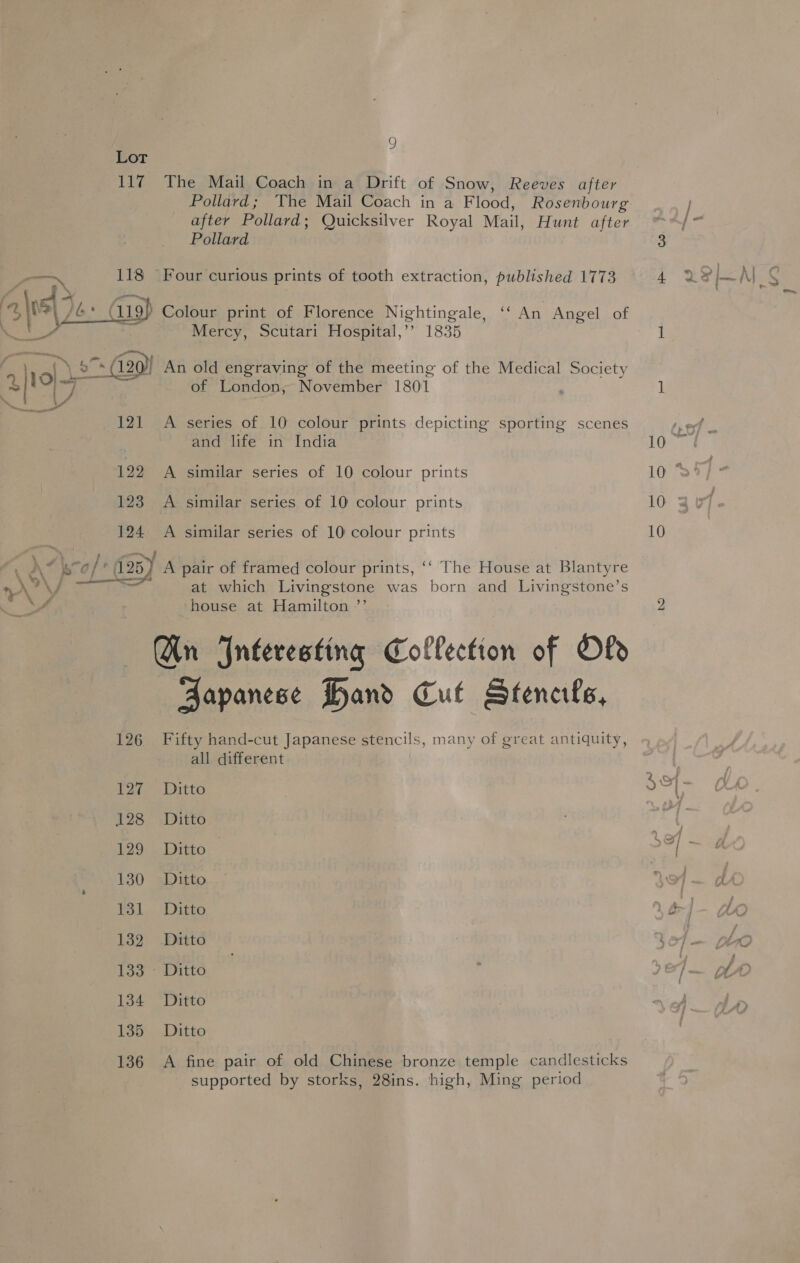 9
Lot
117 The Mail Coach in a Drift of Snow, Reeves after
Pollard; The Mail Coach in a Flood, Rosenbourg
after Pollard; Quicksilver Royal Mail, Hunt after
Pollard 3
118 Four curious prints of tooth extraction, published 1773 4
119 Colour print of Florence Nightingale, “ An Angel of
Mercy, Scutari Hospital,” 1835 1
120 An old engraving of the meeting of the Medical Society
of London, November 1801 1
121 A series of 10 colour prints depicting sporting scenes
and life in India 10
122 A similar series of 10 colour prints 10
123 A similar series of 10 colour prints 10
124 A similar series of 10 colour prints 10
125 A pair of framed colour prints, “ The House at Blantyre
at which Livingstone was born and Livingstone’s
house at Hamilton ” 2
An Interesting Collection of Old
Japanese Hand Cut Stencils,
126 Fifty hand-cut Japanese stencils, many of great antiquity,
all different
127 Ditto
128 Ditto
129 Ditto
130 Ditto
131 Ditto
132 Ditto
133 Ditto
134 Ditto
135 Ditto
136 A fine pair of old Chinese bronze temple candlesticks
supported by storks, 28ins. high, Ming period